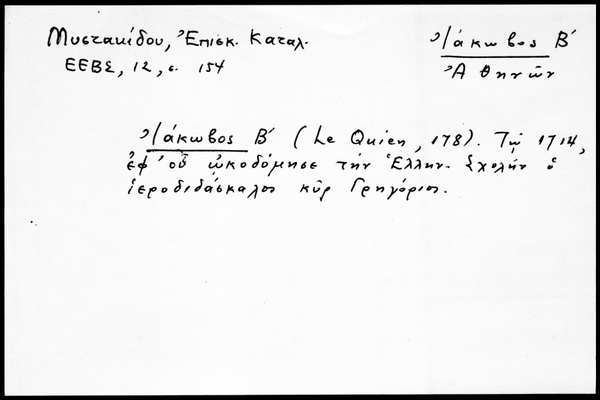 Μυστακίδου, Ἐπισκ. Καταλ.
ΕΕΒΣ, 12, σ. 154
Ἰάκωβος Β΄
Ἀθηνῶν
Ἰάκωβος Β΄ (Le Quien, 178). Τῷ 1714,
ἐφ' οὗ ᾠκοδόμησε τὴν Ἑλλην. Σχολὴν ὁ
ἱεροδιδάσκαλος κῦρ Γρηγόριος.